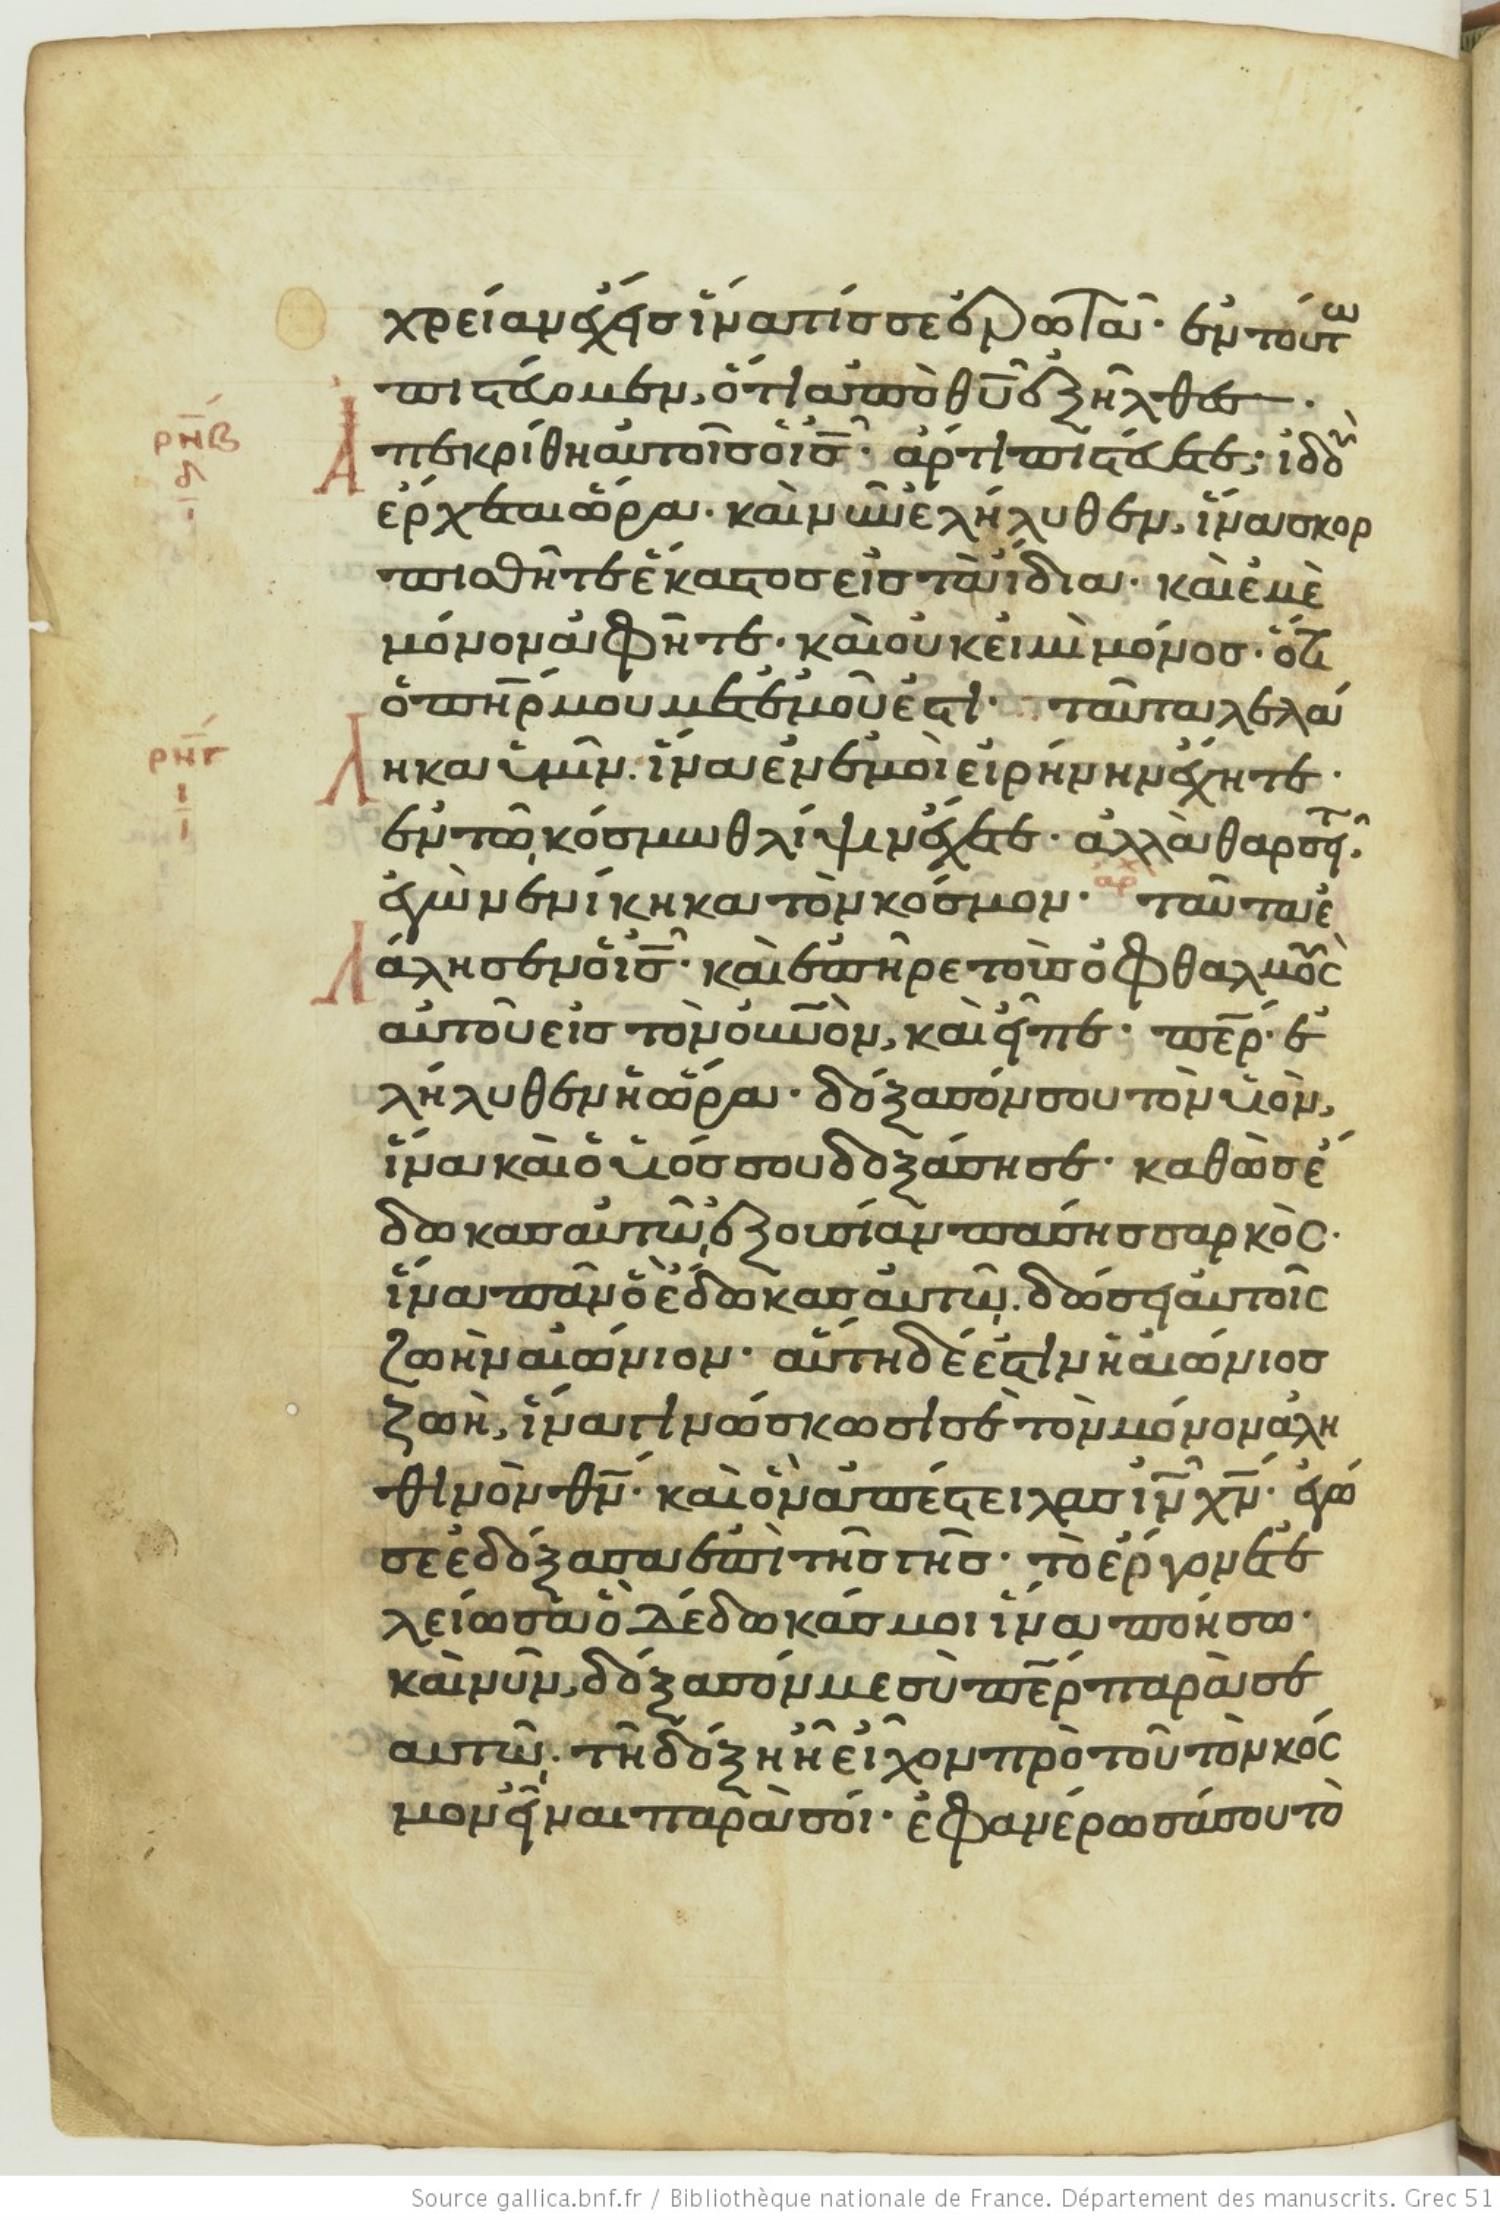 χρείαν ἔχεις ἵνα τίς σε ἐρωτᾶ· ἐν τούτω
πιστεύομεν, ὅτι ἀπὸ θ̅υ̅ ἐξῆλθες.
Ἀπεκρίθη αὐτοῖς ὁ ι̅ς̅· ἄρτι πιστεύετε; ἰδοὺ
ἔρχεται ὥρα· καὶ νῦν ἐλήλυθεν, ἵνα σκορ
πισθῆτε ἕκαστος εἰς τὰ ἴδια· καὶ ἐμὲ
μόνον ἀφῆτε· καὶ οὐκ εἰμὶ μόνος· ὅτι
ὁ π̅η̅ρ̅ μου μετ' ἐμοῦ ἐστι· ταῦτα λελά
ληκα ὑμῖν. ἵνα ἐν ἐμοὶ εἰρήνην ἔχητε·
ἐν τῶ κόσμω θλίψιν ἔχετε· ἀλλὰ θαρσεῖτ.
ἐγὼ νενίκηκα τὸν κόσμον· αρχ ταῦτα ἐ
λάλησεν ὁ ι̅ς̅· καὶ ἐπῆρε τοὺς ὀφθαλμοὺς
αὐτοῦ εἰς τὸν ο̅υ̅ν̅ο̅ν̅, καὶ εἶπε· π̅ε̅ρ̅· ἐ
λήλυθεν ἡ ὥρα· δόξασόν σου τὸν υἱὸν,
ἵνα καὶ ὁ υἱός σου δοξάση σε· καθὼς ἔ
δωκας αὐτῶ ἐξουσίαν πάσης σαρκὸς·
ἵνα πᾶν ὃ ἔδωκας αὐτῶ. δώσει αὐτοῖς
ζωὴν αἰώνιον· αὕτη δέ ἐστιν ἡ αἰώνιος
ζωὴ, ἵνα γινώσκωσί σε τὸν μόνον ἀλη
θινὸν θ̅ν̅· καὶ ὃν ἀπέστειλας ι̅ν̅ χ̅ν̅· ἐγώ
σε ἐδόξασα ἐπὶ τῆς γῆς· τὸ ἔργον ἐτε
λείωσα ὃ δέδωκάς μοι ἵνα ποιήσω·
καὶ νῦν, δόξασόν με σὺ π̅ε̅ρ̅ παρὰ σε
αυτῶ. τῆ δόξη ἧ εἶχον πρὸ τοῦ τὸν κόσ
μον εἶναι παρὰ σοί· ἐφανέρωσά σου τὸ
ρ̅ν̅β̅
δ
ρ̅ν̅γ̅
ι
Source gallica.bnf.fr / Bibliothèque nationale de France. Département des manuscrits. Grec 51